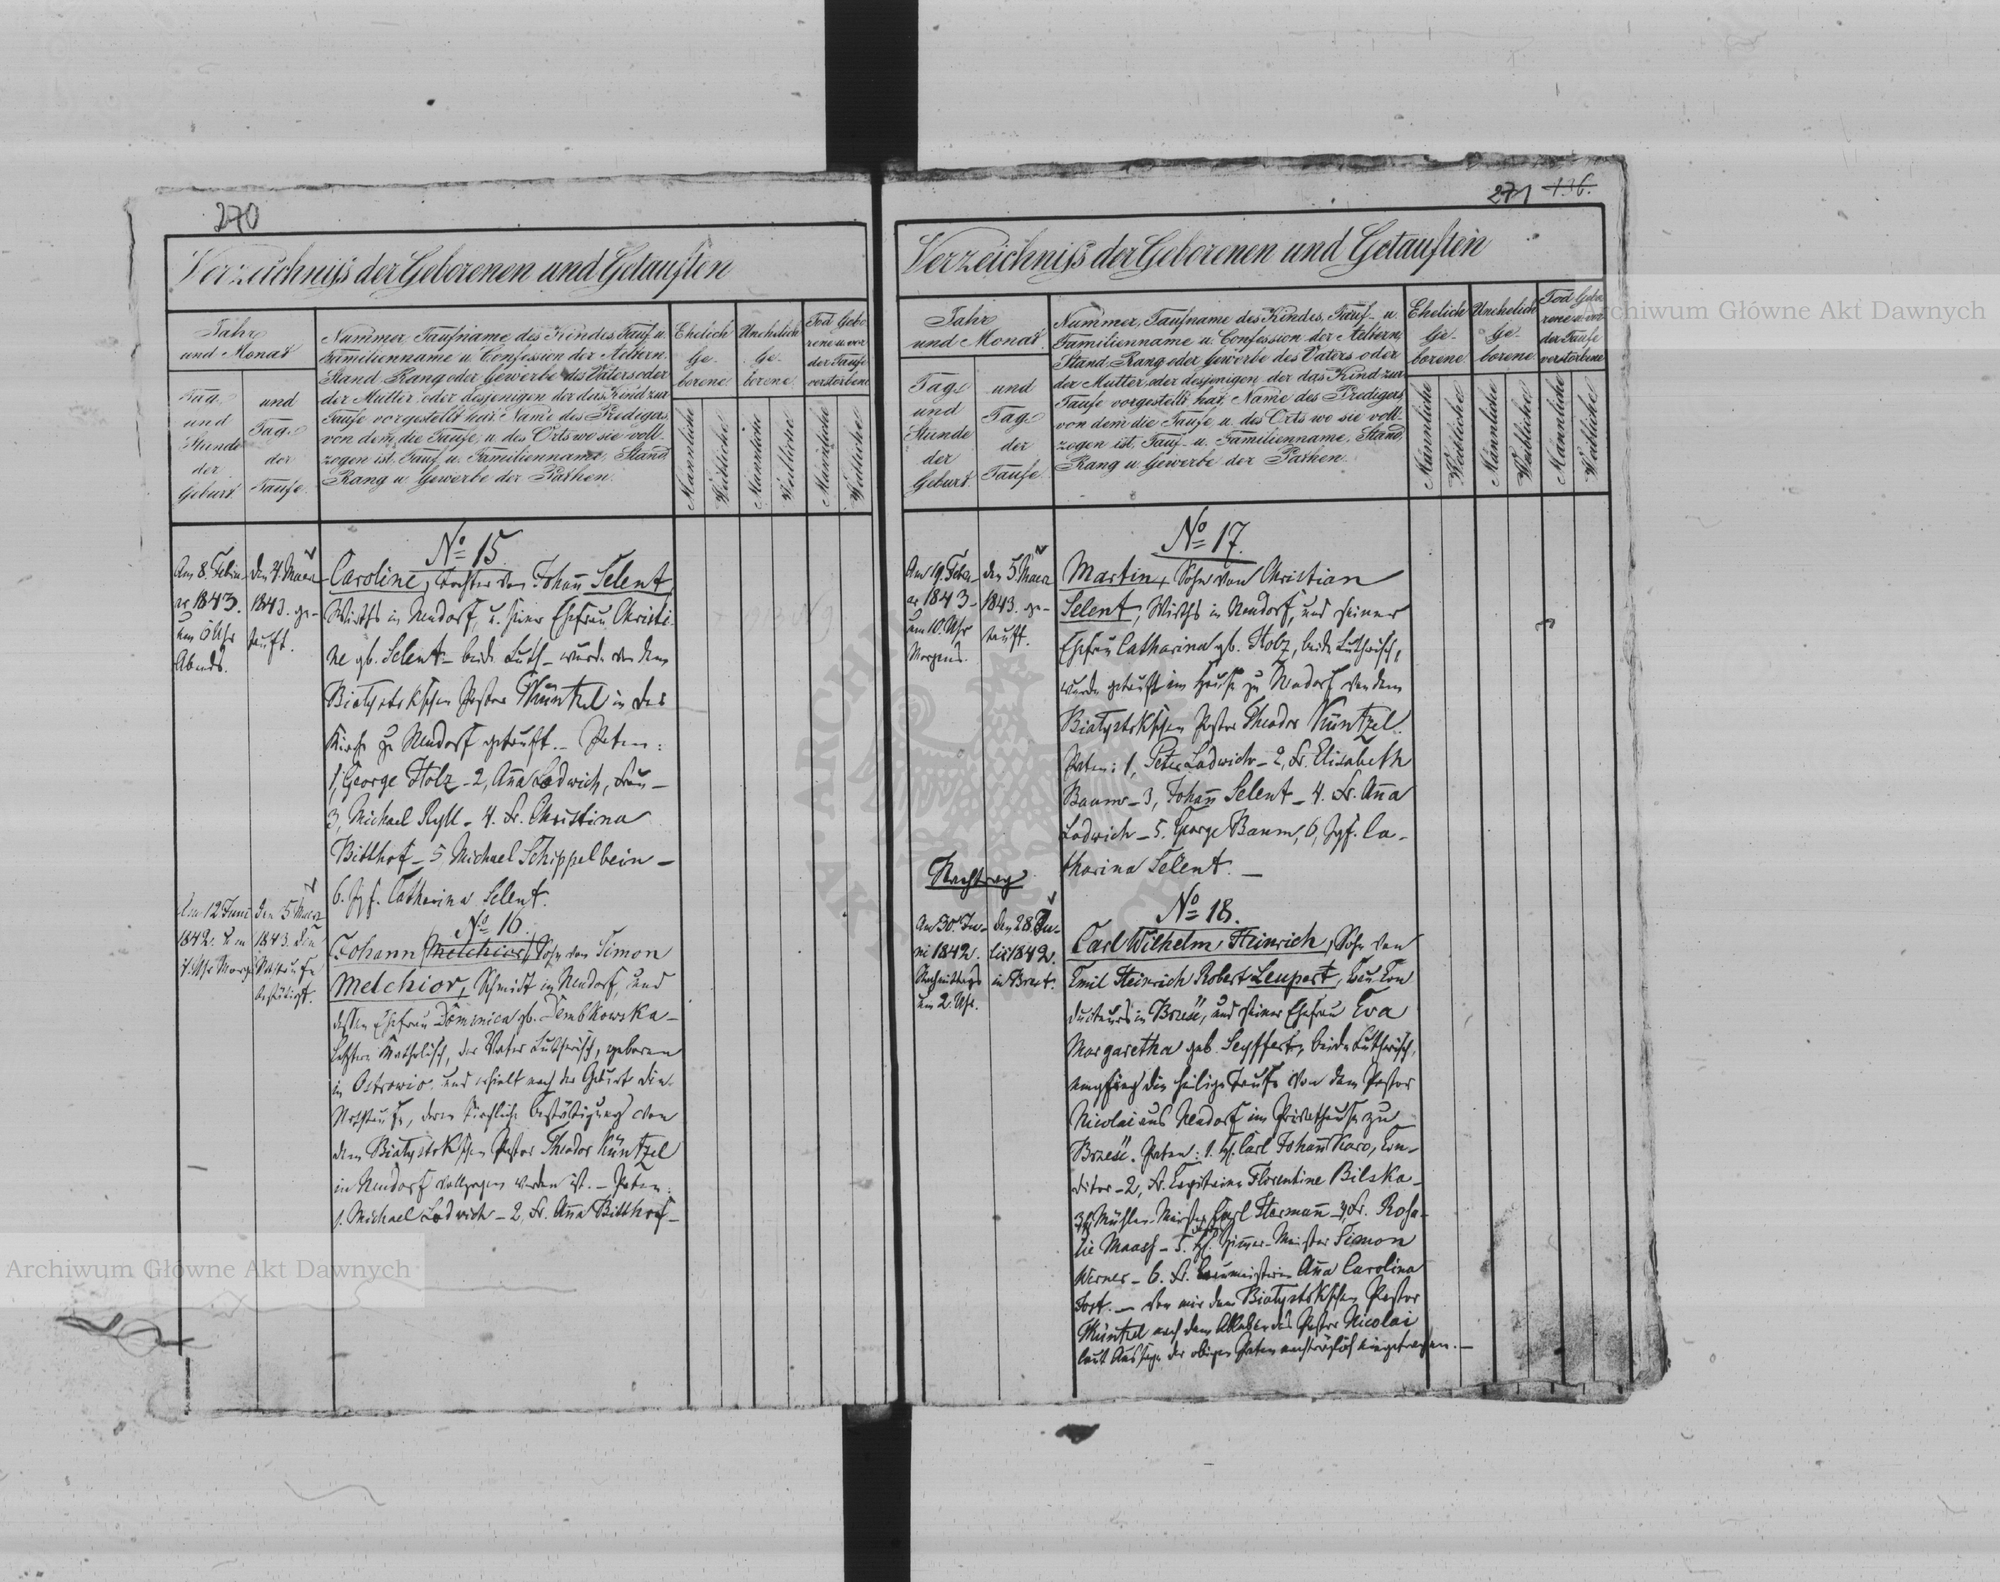 270
Verzeichniss der Geborenen und Getauften
Jahr
und Monat
Tag
und
Stunde
der
Geburt
und
Tag
der
Taufe.
Nummer, Taufname des Kindes, Tauf u.
Familienname u. Confession der Aeltern.
Stand, Rang oder Gewerbe des Vaters oder
der Mutter oder desjenigen der das Kind zur
Taufe vorgestellt hat. Name des Predigers
von dem die Taufe u. des Orts wo sie voll-
zogen ist. Tauf u. Familienname, Stand,
Rang u. Gewerbe der Pathen.
Ehelich
Ge-
borene
Unehelich
Ge-
borene
Tod Gebo-
rene u. vor
der Taufe
verstorbene
Männliche
Weibliche
Männliche
Weibliche
Männliche
Weibliche
Am 8. Febru-
ar 1843.
um 6 Uhr
Abends.
den 4. Maerz
1843. ge-
tauft.
No 15.
Caroline, Tochter von Johann Selent,
Wirths in Neudorf, u. seiner Ehefrau Christi-
ne gb. Selent - beide Luth - wurde von dem
Bialystokschen Pastor Küntzel in der
Kirche zu Neudorf getauft. - Paten:
1, George Holz - 2, Anna Ludwich, Frau -
3, Michael Ryll - 4. Fr. Christina
Bitthof - 5, Michael Schippelbein -
6. Jgf. Catharina Selent.
Am 12 Juni
1842. um
4 Uhr Morg.
den 5 Maerz
1843. die
Nottaufe
bestätigt.
No 16.
Johann Melchior, Sohn von Simon
Melchior, Schmidt in Neudorf, und
dessen Ehefrau Dominica gb. Dembkowska -
letztere Katholisch, der Vater Lutherisch, geboren
in Ostrowio und erhielt nach der Geburt die
Nottaufe, deren kirchliche Bestätigung von
dem Bialystokschen Pastor Theodor Küntzel
in Neudorf vollzogen worden ist. - Paten:
1. Michael Ludwich - 2, Fr. Anna Bitthof -
271 136.
Verzeichniss der Geborenen und Getauften
Jahr
und Monat
Tag
und
Stunde
der
Geburt.
und
Tag
der
Taufe.
Nummer, Taufname des Kindes, Tauf- u.
Familienname u. Confession der Aeltern,
Stand, Rang oder Gewerbe des Vaters oder
der Mutter oder desjenigen der das Kind zur
Taufe vorgestellt hat. Name des Predigers
von dem die Taufe u. des Orts wo sie voll-
zogen ist, Tauf- u. Familienname, Stand,
Rang u. Gewerbe der Pathen.
Ehelich
Ge-
borene
Unehelich
Ge-
borene
Tod Gebo-
rene u. vor
der Taufe
verstorbene
Männliche
Weibliche
Männliche
Weibliche
Männliche
Weibliche
Am 19. Febru-
ar 1843 -
um 10 Uhr
Morgens.
den 5 Maerz
1843. ge-
tauft.
No 17.
Martin, Sohn von Christian
Selent, Wirths in Neudorf, und seiner
Ehefrau Catharina gb. Holz, beide Lutherisch,
wurde getauft im Hause zu Neudorf von dem
Bialystokschen Pastor Theodor Küntzel.
Paten: 1, Peter Ludwich - 2, Fr. Elisabeth
Baum - 3, Johann Selent - 4. Fr. Anna
Ludwich - 5. George Baum, 6, Jgf. Ca-
tharina Selent. -
Nachtrag
Am 30. Ju-
ni 1842.
Nachmittags
um 2. Uhr.
den 28. Ju-
li 1842.
in Brest.
No 18.
Carl Wilhelm Heinrich, Sohn von
Emil Heinrich Robert Leupert, Bau-Con
ducteurs in Brzesc, und seiner Ehefrau Eva
Margaretha geb. Seyffert, beide Lutherisch,
empfing die heilige Taufe von dem Pastor
Nicolai aus Neudorf im Privathause zu
Brzesc. Paten: 1. H. Carl Johann Karo, Con-
ditor - 2, Fr. Capitaine Florentine Bilska -
3, H. Mühlen-Meister Carl Hermann - 4, Fr. Rosa-
lie Maass - 5. H. Zimmer-Meister Simon
Werner - 6. Fr. Baumeisterin Anna Carolina
Jost. - Von mir dem Bialystokschen Pastor
Küntzel nach dem Ableben des Pastor Nicolai
laut Aussage der obigen Paten nachträglich eingetragen. -
Archiwum Główne Akt Dawnych
Archiwum Główne Akt Dawnych